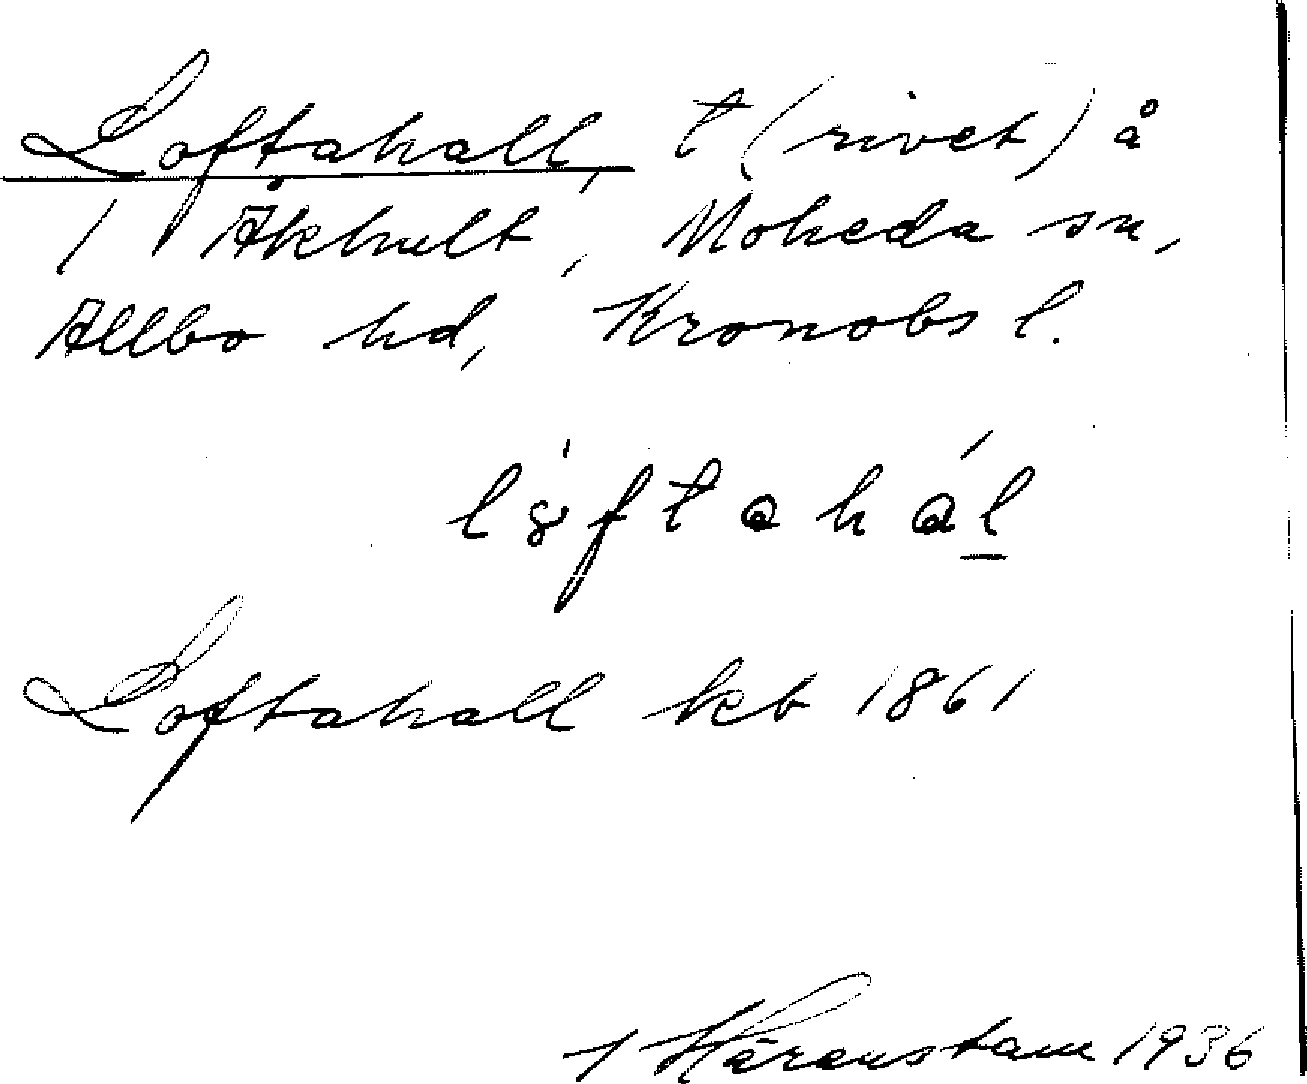 Loftahall, t (rivet) å
1 Åkhult, Moheda sn,
Allbo hd, Kronobs l.
Loftahall kb 1861
Härenstam 1936